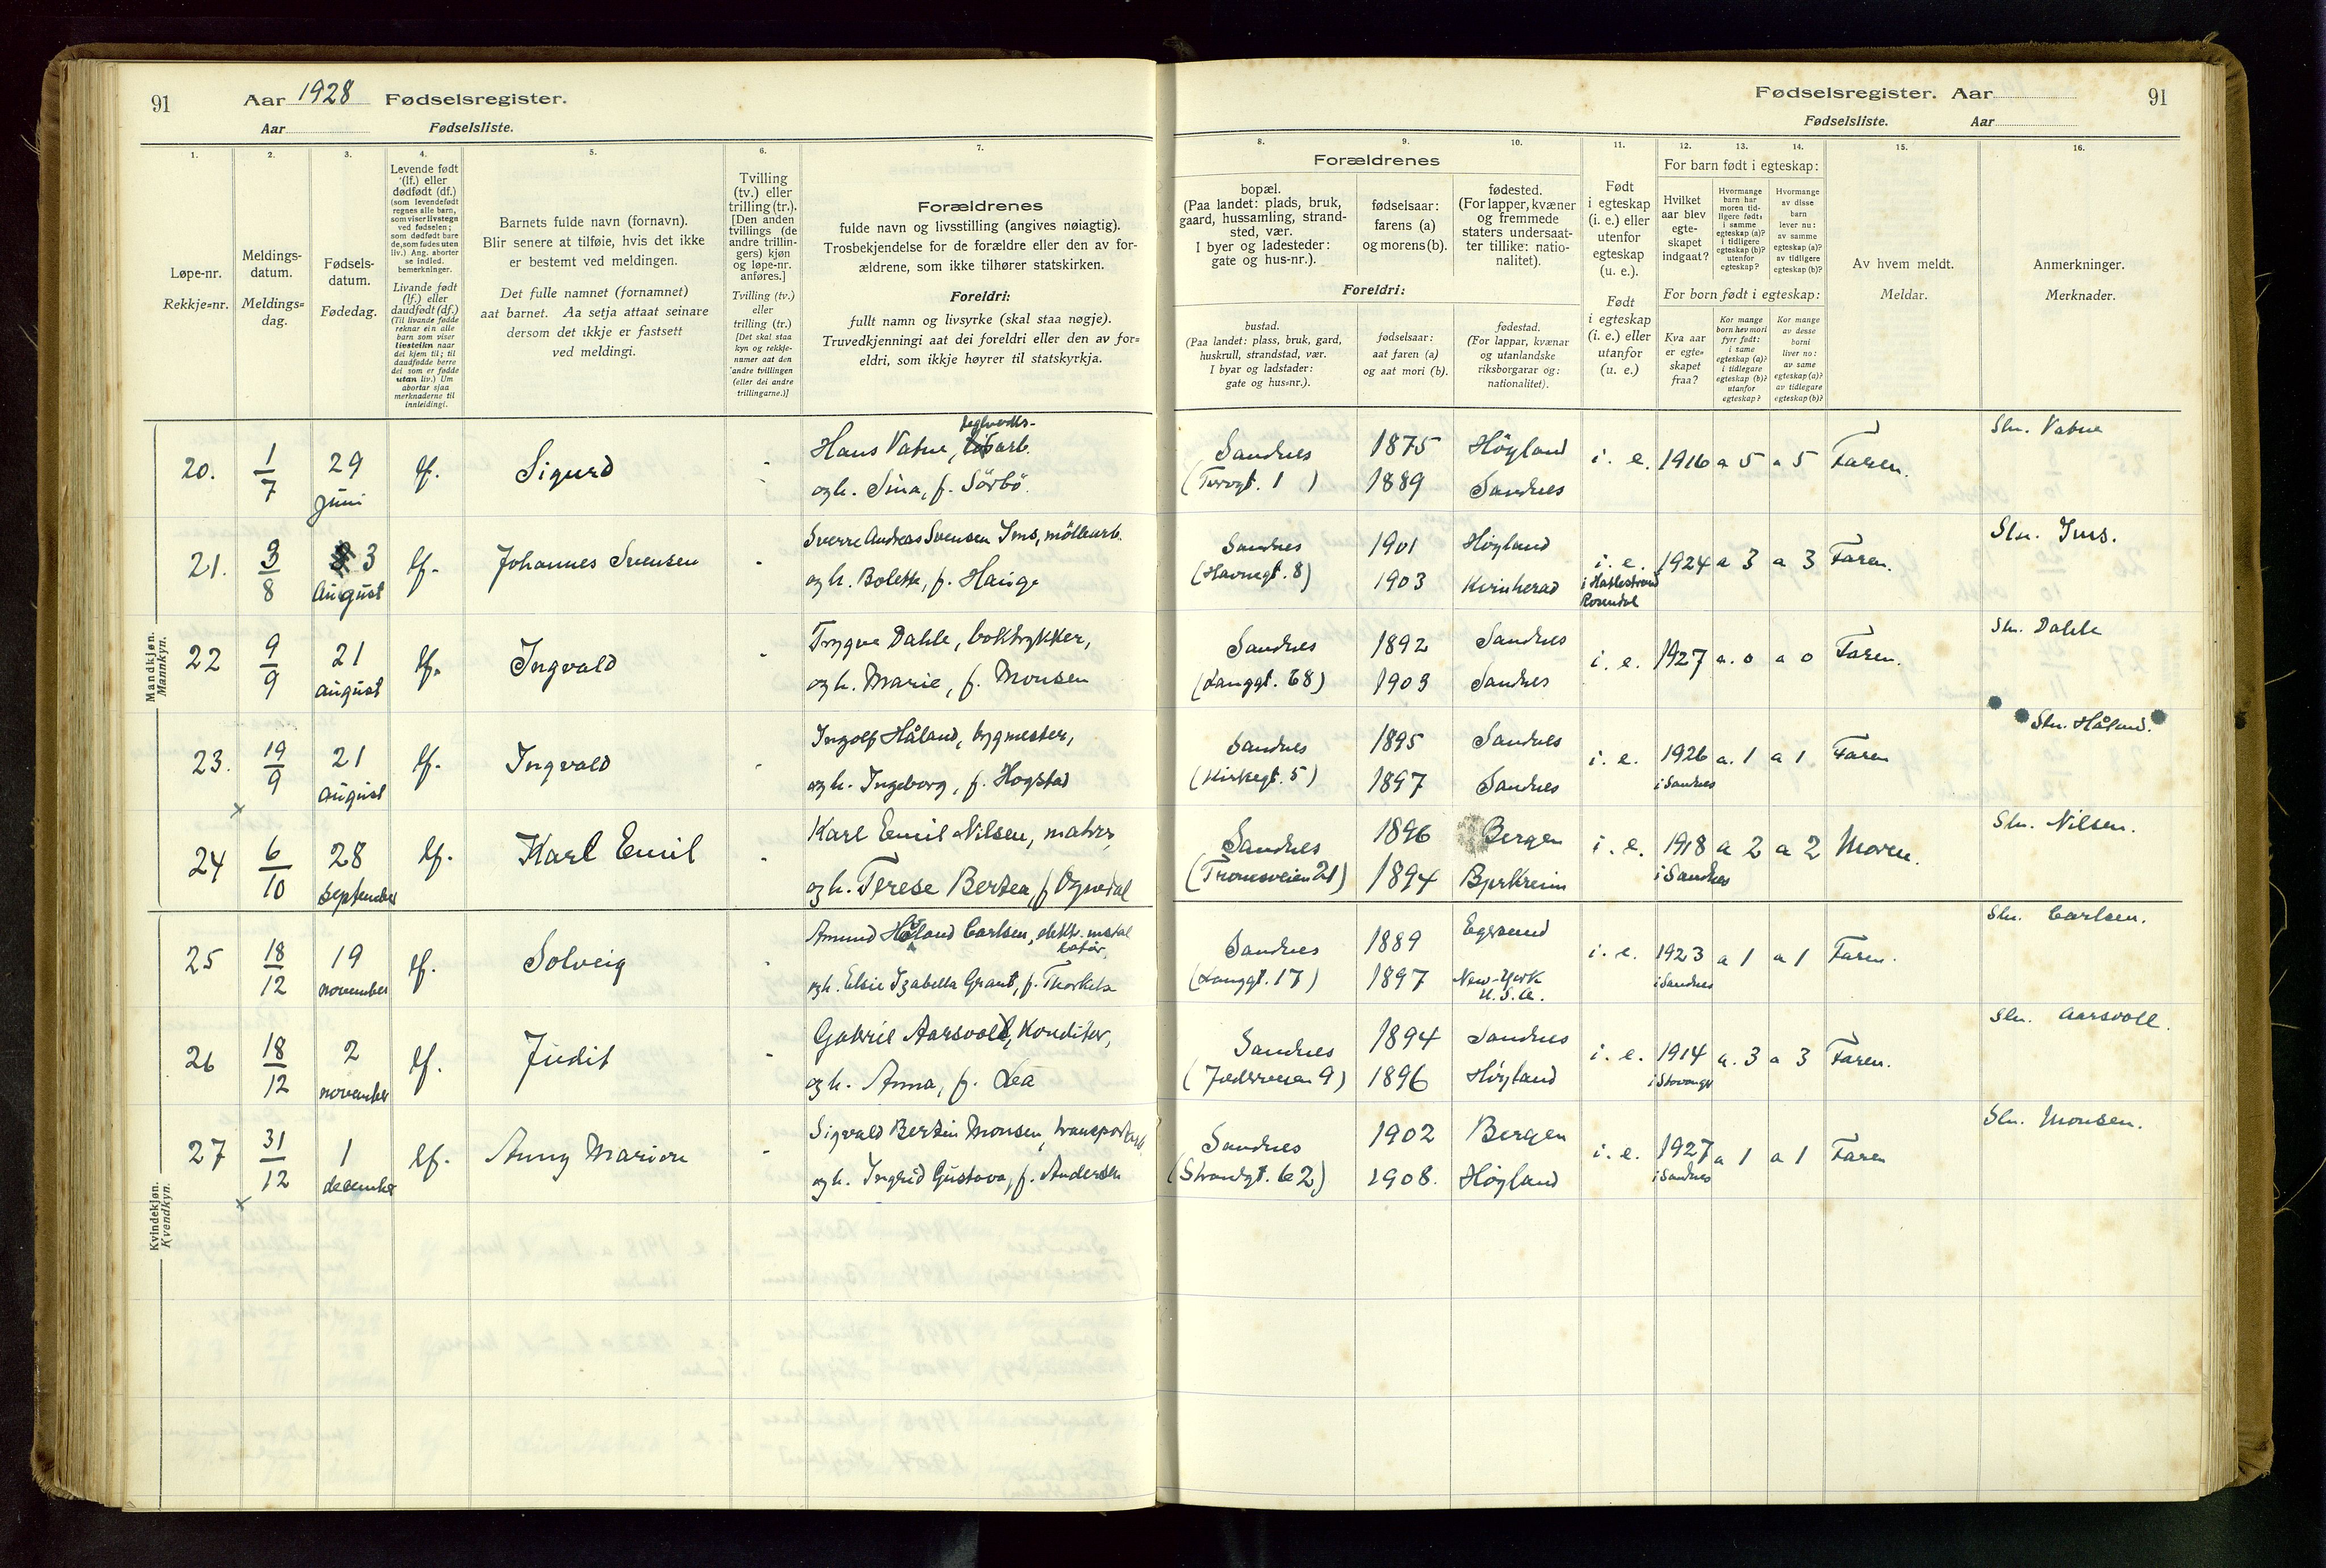 91
Aar 1928 Fødselsregister.
Aar Fødselsliste.
Fødselsregister. Aar 91
Fødselsliste. Aar
1. 2. 3. 4. 5. 6. 7. 8. 9. 10. 11. 12. 13. 14. 15. 16.
Løpe-nr.
Rekkje-nr.
Meldings-
datum.
Meldings-
dag.
Fødsels-
datum.
Fødedag.
Levende født
(lf.) eller
dødfødt (df.)
(som levendefødt
regnes alle barn,
som viser livstegn
ved fødselen;
som dødfødt bare
de, som fødes uten
liv.) Ang. aborter
se indled.
bemerkninger.
Livande født
(lf.) eller
daudfødt (df.)
(Til livande fødde
reknar ein alle
barn som viser
livsteikn naar
dei kjem til; til
daudfødde berre
dei som er fødde
utan liv.) Um
abortar sjaa
merknaderne til
innleidingi.
Barnets fulde navn (fornavn).
Blir senere at tilføie, hvis det ikke
er bestemt ved meldingen.
Det fulle namnet (fornamnet)
aat barnet. Aa setja attaat seinare
dersom det ikkje er fastsett
ved meldingi.
Tvilling
(tv.) eller
trilling (tr.).
[Den anden
tvillings (de
andre trillin-
gers) kjøn
og løpe-nr.
anføres.]
Tvilling (tv.)
eller
trilling (tr.)
[Det skal staa
kyn og rekkje-
numer aat den
andre tvillingen
(eller dei andre
trillingarne.)]
Forældrenes
fulde navn og livsstilling (angives nøiagtig).
Trosbekjendelse for de forældre eller den av for-
ældrene, som ikke tilhører statskirken.
Foreldri:
fullt namn og livsyrke (skal staa nøgje).
Truvedkjenningi aat dei foreldri eller den av for-
eldri, som ikkje høyrer til statskyrkja.
Forældrenes
bopæl.
(Paa landet: plads, bruk,
gaard, hussamling, strand-
sted, vær.
I byer og ladesteder:
gate og hus-nr.).
fødselsaar:
farens (a)
og morens (b).
fødested.
(For lapper, kvæner
og fremmede
staters undersaat-
ter tillike: natio-
nalitet).
Foreldri:
bustad.
(Paa landet: plass, bruk, gard,
huskrull, strandstad, vær.
I byar og ladstader:
gate og hus-nr.).
fødselsaar:
aat faren (a)
og aat mori (b).
fødestad.
(For lappar, kvænar
og utanlandske
riksborgarar og:
nationalitet).
Født
i egteskap
(i. e.) eller
utenfor
egteskap
(u. e.).
Født
i egteskap
(i. e.) eller
utanfor
(u. e.)
For barn født i egteskap:
Hvilket
aar blev
egte-
skapet
indgaat?
Hvormange
barn har
moren tid-
ligere født:
i samme
egteskap (a)?
i tidligere
egteskap (b)?
utenfor
egteskap?
Hvormange
av disse
barn
lever nu:
av samme
egteskap (a)?
av tidligere
egteskap (b)?
For born født i egteskap:
Kva aar
er egte-
skapet
fraa?
Kor mange
born hev mori
fyrr født:
i same
egteskap (a)?
i tidlegare
egteskap (b)?
utanfor
egteskap?
Kor mange
av desse
borni
liver no:
av same
egteskap (a)?
av tidlegare
egteskap (b)?
Av hvem meldt.
Meldar.
Anmerkninger.
Merknader.
Mandkjøn.
Mannkyn.
20. 1/7 29 juni lf. Sigurd
Hans Vatne, teglverks-arb.
og h. Sina, f. Sörbö.
Sandnes 1875 Höyland i. e. 1916 a 5 a 5 Faren. Stn. Vatne
(Torvgt. 1) 1889 Sandnes
21. 3/8 3 August lf. Johannes Svensen
Sverre Andreas Svensen Ims, möllearb.
og h. Bolette, f. Hauge
Sandnes 1901 Höyland i. e. 1924 a 3 a 3 Faren. Stn. Ims.
(Havnegt. 8) 1903 Kvinherad
Rosendal
22 9/9 21 august lf. Ingvald
Trygve Dahle, boktrykker,
og h. Marie, f. Monsen
Sandnes 1892 Sandnes i. e. 1927 a. 0 a 0 Faren. Stn. Dahle
(Langgt. 68) 1903 Sandnes
23. 19/9 21 august lf. Ingvald
Ingolf Håland, bygmester,
og h. Ingeborg, f. Hogstad
Sandnes 1895 Sandnes i. e. 1926 a. 1 a 1 Faren Stn. Håland.
(Kirkegt. 5) 1897 Sandnes i Sandnes
x
24 6/10 28 september lf. Karl Emil
Karl Emil Nilsen, maler,
og h. Terese Bertea, f Ognedal
Sandnes 1896 Bergen i. e. 1918 a 2 a 2 Moren. Stn. Nilsen.
(Tronesveien 21) 1894 Bjerkreim i Sandnes
Kvindekjøn.
Kvendkyn.
25 18/12 19 november lf. Solveig
Amund Håland Carlsen, elektr. instal
latør,
og h. Elsie Izabella Grant, f.
Sandnes 1889 Egersund i. e. 1923 a 1 a 1 Faren. Stn. Carlsen.
(Langgt. 17) 1897 New-York i Sandnes
U. S. A.
26 18/12 2 november lf. Judit
Gabriel Aarsvoll, Konditor,
og h. Anna, f. Lea
Sandnes 1894 Sandnes i. e. 1914 a. 3 a 3 Faren. Stn. Aarsvoll.
(Jæderveien 9) 1896 Höyland i Stavanger
27 31/12 1 december lf. Anny Marion
Sigvald Bertin Monsen, transportarb.
og h. Ingrid Gustava, f. Andersen
Sandnes 1902 Bergen i. e. 1927 a 1 a 1 Faren Stn. Monsen.
(Strandgt. 62) 1908. Höyland i Sandnes
x